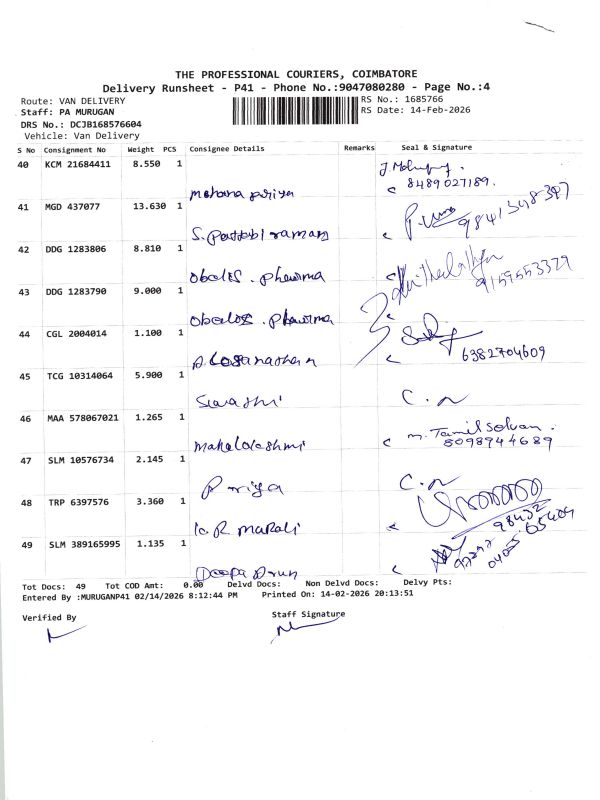 THE PROFESSIONAL COURIERS, COIMBATORE
Delivery Runsheet - P41 - Phone No.:9047080280 - Page No.:4
Route: VAN DELIVERY
Staff: PA MURUGAN
DRS No.: DCJB168576604
Vehicle: Van Delivery
RS No.: 1685766
RS Date: 14-Feb-2026
S No Consignment No Weight PCS Consignee Details Remarks Seal & Signature
40 KCM 21684411 8.550 1
mohana priya 8489027189.
41 MGD 437077 13.630 1
S. Pattabiraman
42 DDG 1283806 8.810 1
Obelis . pharma 9159553329
43 DDG 1283790 9.000 1
Obelis . pharma
44 CGL 2004014 1.100 1
6382704609
45 TCG 10314064 5.900 1
C.n
46 MAA 578067021 1.265 1
Mahalakshmi m. Tamil Selvan . 8098944689
47 SLM 10576734 2.145 1
Priya C.n
48 TRP 6397576 3.360 1
49 SLM 389165995 1.135 1
Deepa Arun
Tot Docs: 49 Tot COD Amt: 0.00 Delvd Docs: Non Delvd Docs: Delvy Pts:
Entered By :MURUGANP41 02/14/2026 8:12:44 PM Printed On: 14-02-2026 20:13:51
Verified By Staff Signature